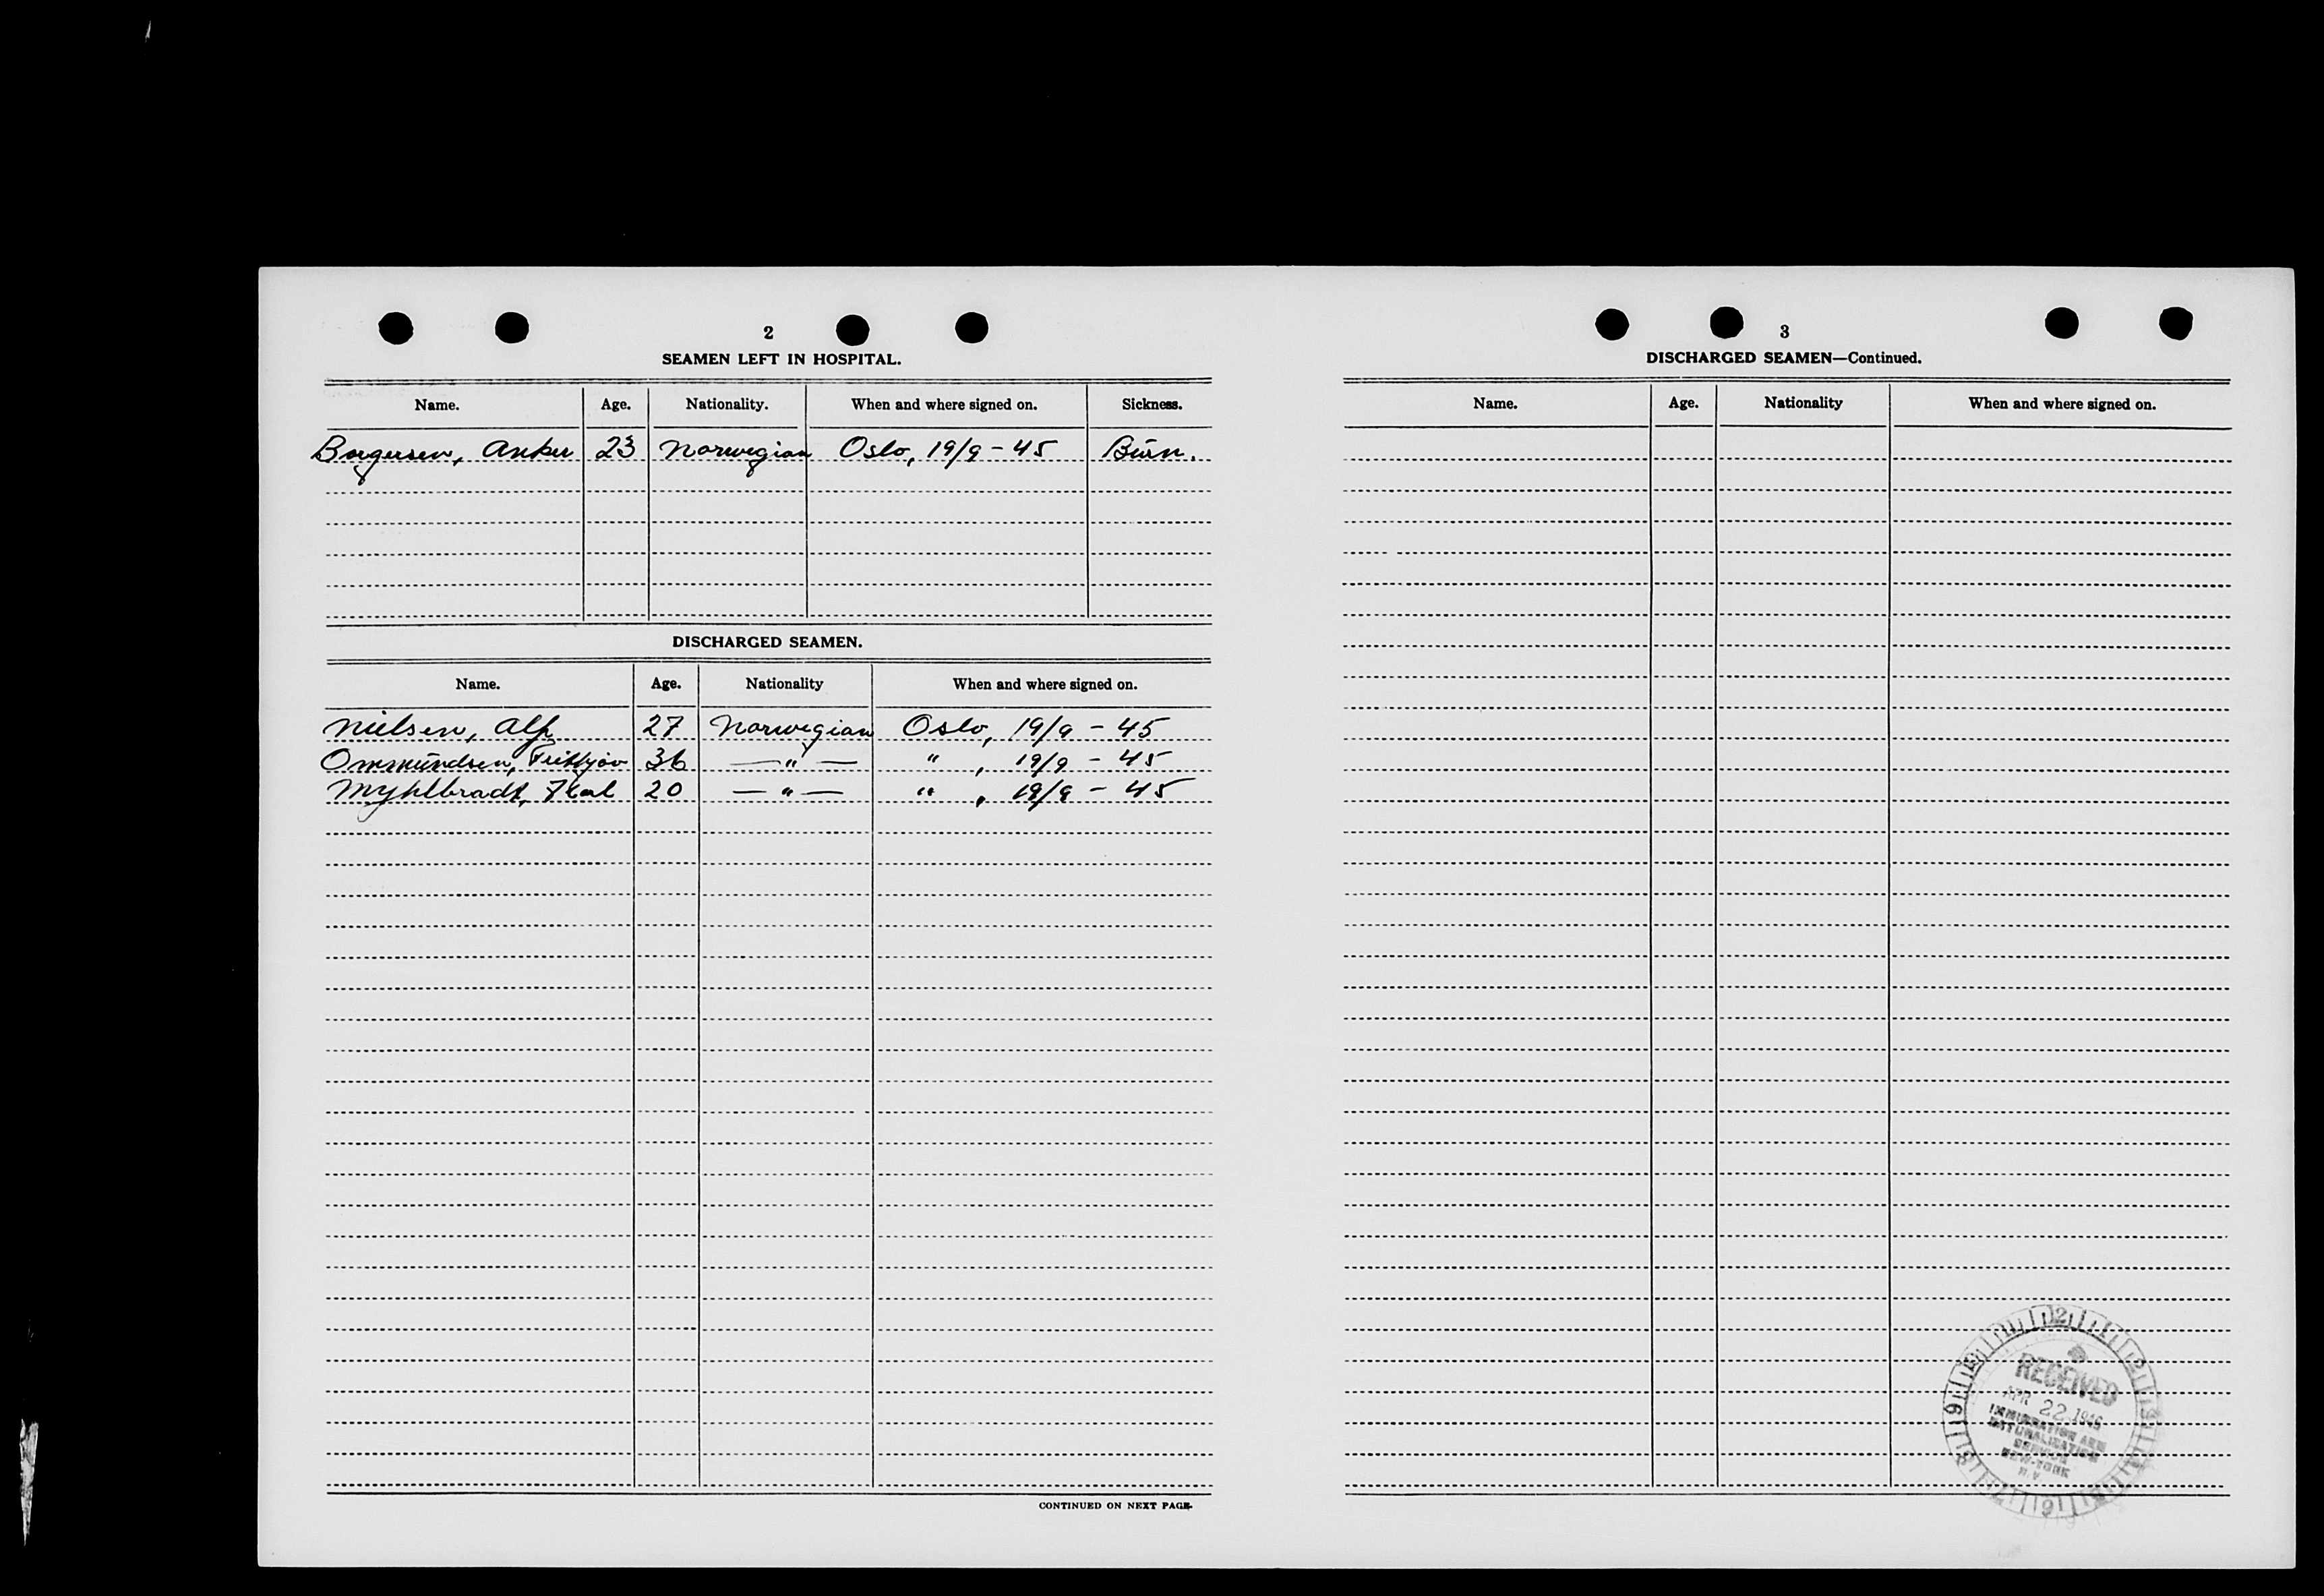 2
SEAMEN LEFT IN HOSPITAL.
Name. Age. Nationality. When and where signed on. Sickness.
Borgersen, Anker 23 Norwegian Oslo, 19/9 - 45 Burn.
DISCHARGED SEAMEN.
Name. Age. Nationality When and where signed on.
Nielsen, Alf 27 Norwegian Oslo, 19/9 - 45
Ommundsen, Frithjov 36 — " — " , 19/9 - 45
Myhlbradt, 20 — " — " , 19/9 - 45
CONTINUED ON NEXT PAGE.
3
DISCHARGED SEAMEN—Continued.
Name. Age. Nationality When and where signed on.
RECEIVED
APR 22 1946
IMMIGRATION AND
NATURALIZATION
SERVICE
NEW-YORK
N.Y.